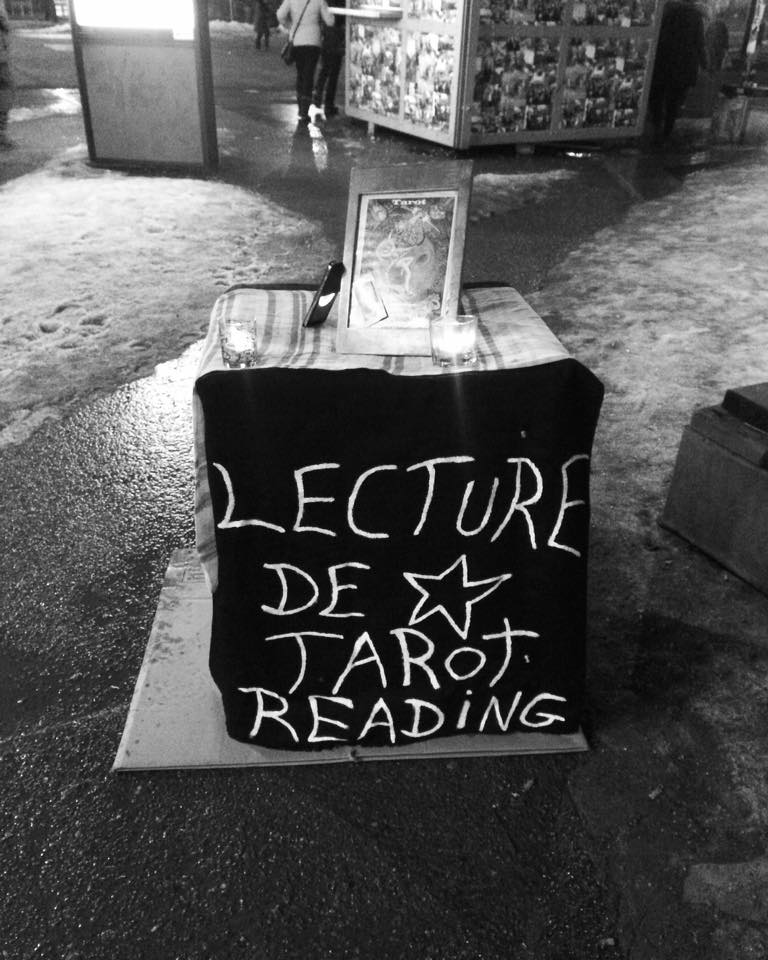 Tarot
LECTURE
DE
TAROT
READiNG